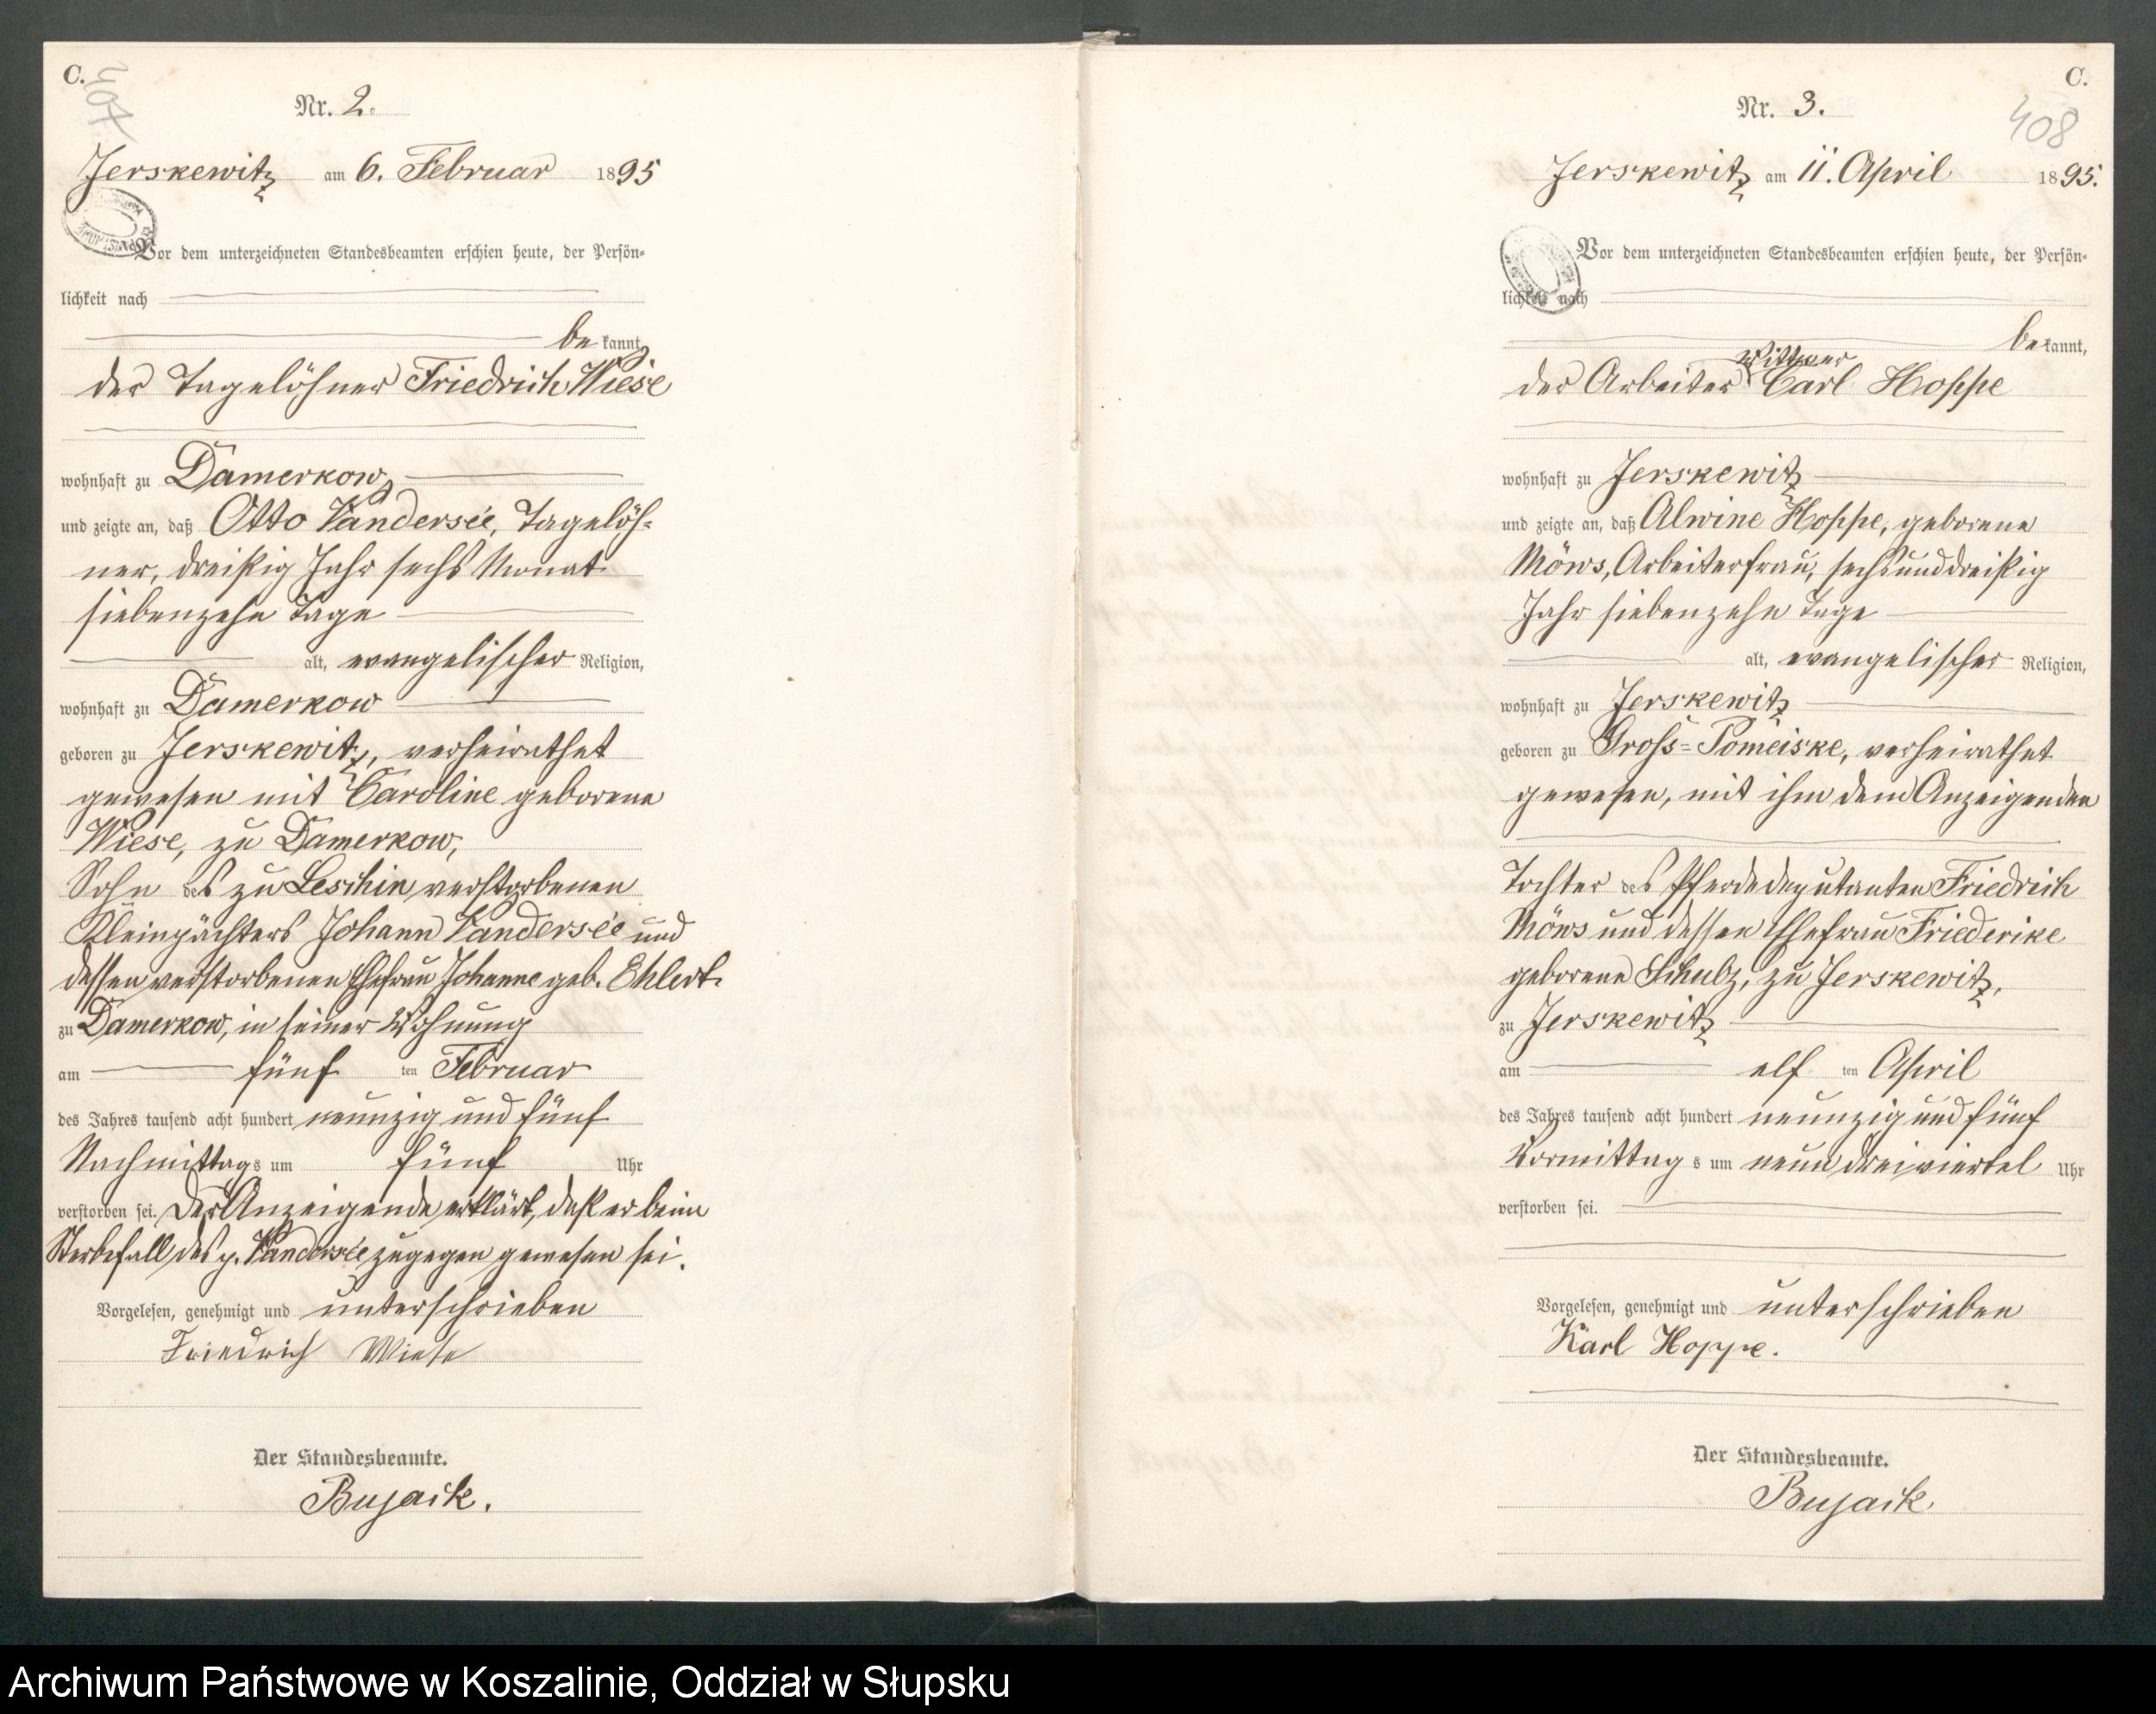 C.
407
Nr. 2.
Jerskewitz am 6. Februar 1895
Vor dem unterzeichneten Standesbeamten erschien heute, der Persön-
lichkeit nach
be kannt,
der Tagelöhner Friedrich Wiese
wohnhaft zu Damerkow,
und zeigte an, daß Otto Vandersee, Tagelöh-
ner, dreißig Jahr sechs Monat
siebenzehn Tage
alt, evangelischer Religion,
wohnhaft zu Damerkow
geboren zu Jerskewitz, verheirathet
gewesen mit Caroline geborene
Wiese, zu Damerkow,
Sohn des zu Leschin verstorbenen
Kleinpächters Johann Vandersee und
dessen verstorbenen Ehefrau Johanne geb. Ehlert.
zu Damerkow, in seiner Wohnung
am fünf ten Februar
des Jahres tausend acht hundert neunzig und fünf
Nachmittags um fünf Uhr
verstorben sei. Der Anzeigende erklärt, daß er beim
Sterbefall des p. Vandersee zugegen gewesen sei.
Vorgelesen, genehmigt und unterschrieben
Friedrich Wiese
Der Standesbeamte.
Bujack.
C.
408
Nr. 3.
Jerskewitz am 11. April 1895.
Vor dem unterzeichneten Standesbeamten erschien heute, der Persön-
lichkeit nach
be kannt,
Wittwer
der Arbeiter Carl Hoppe
wohnhaft zu Jerskewitz
und zeigte an, daß Alwine Hoppe, geborene
Möws, Arbeiterfrau, sechsunddreißig
Jahr siebenzehn Tage
alt, evangelischer Religion,
wohnhaft zu Jerskewitz
geboren zu Gross-Pomeiske, verheirathet
gewesen, mit ihm dem Anzeigenden
Tochter des Pferdedeputanten Friedrich
Möws und dessen Ehefrau Friederike
geborene Schulz, zu Jerskewitz,
zu Jerskewitz
am elf ten April
des Jahres tausend acht hundert neunzig und fünf
Vormittags um neun dreiviertel Uhr
verstorben sei.
Vorgelesen, genehmigt und unterschrieben
Karl Hoppe.
Der Standesbeamte.
Bujack.
Archiwum Państwowe w Koszalinie, Oddział w Słupsku